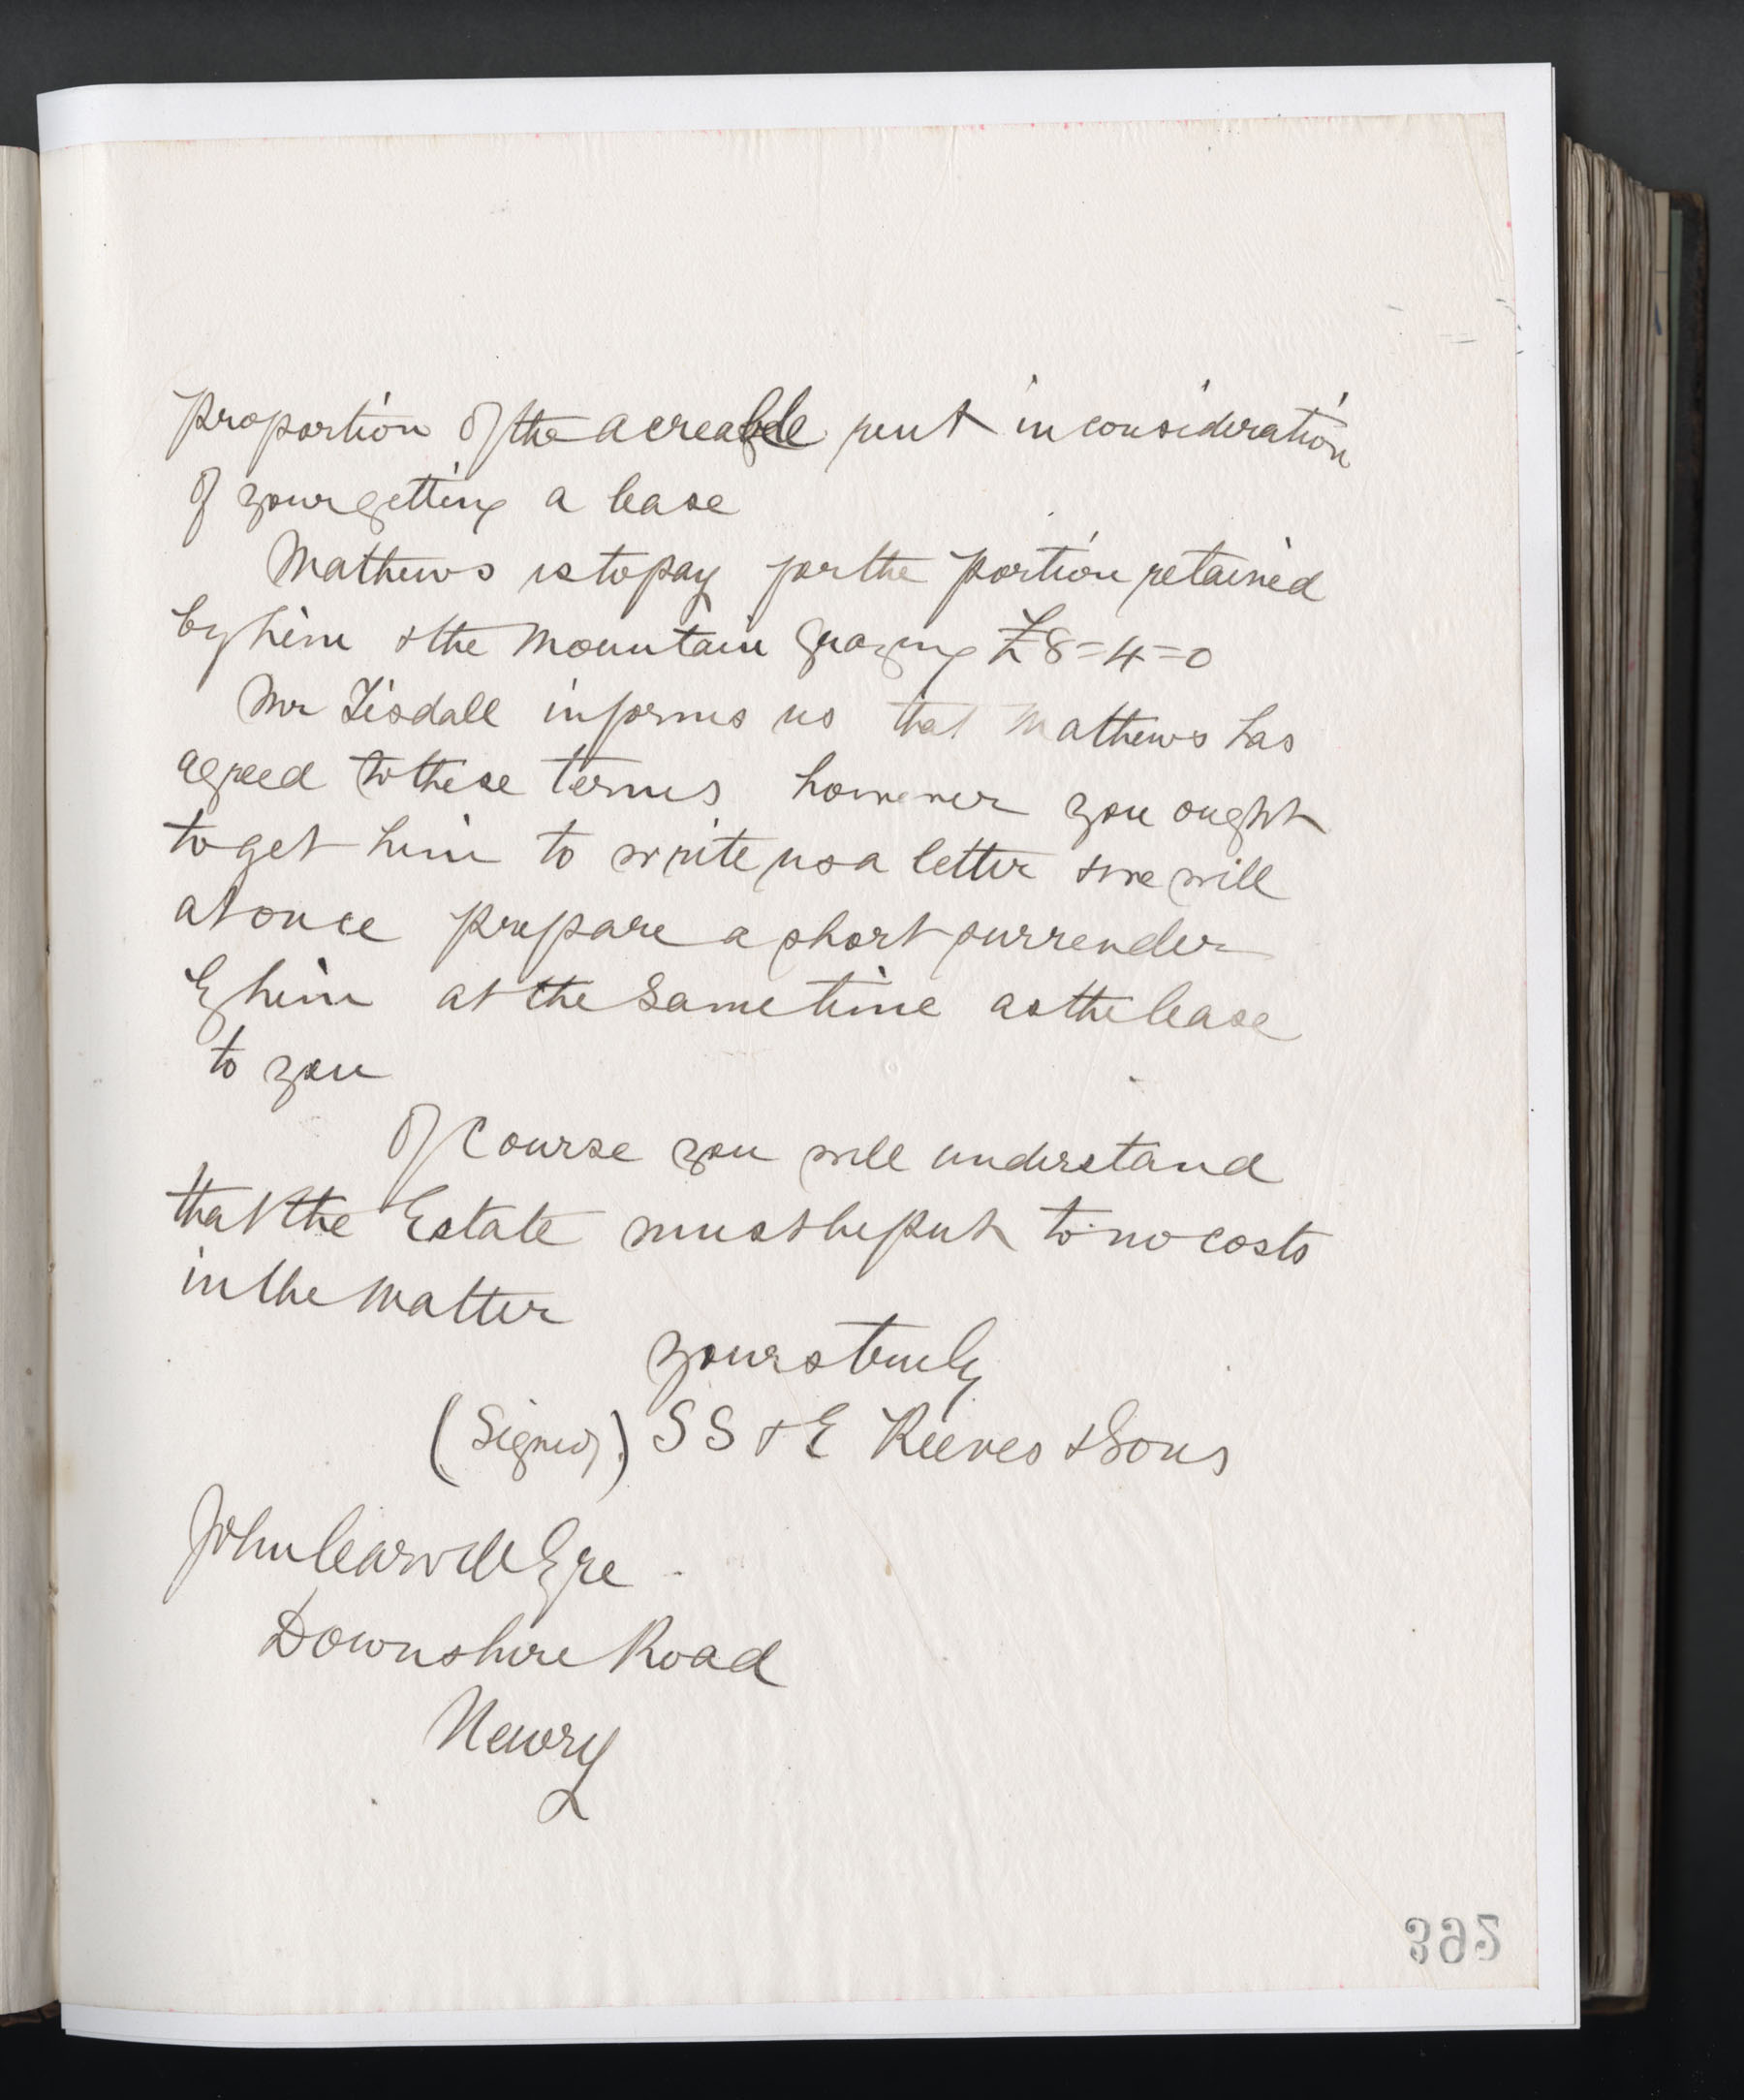 proportion of the acreable rent in consideration
of your getting a lease
Mathews is to pay for the portion retained
by him & the Mountain grazing £8=4=0
Mr Tisdall informs us that Mathews has
agreed to these terms however you ought
to get him to write us a letter & we will
at once prepare a short surrender
by him at the same time as the lease
to you
Of Course you will understand
that the Estate must be put to no costs
in the matter
yours truly
(Signed) SS & E Reeves & Sons
John Carvill Esqe
Downshire Road
Newry
395